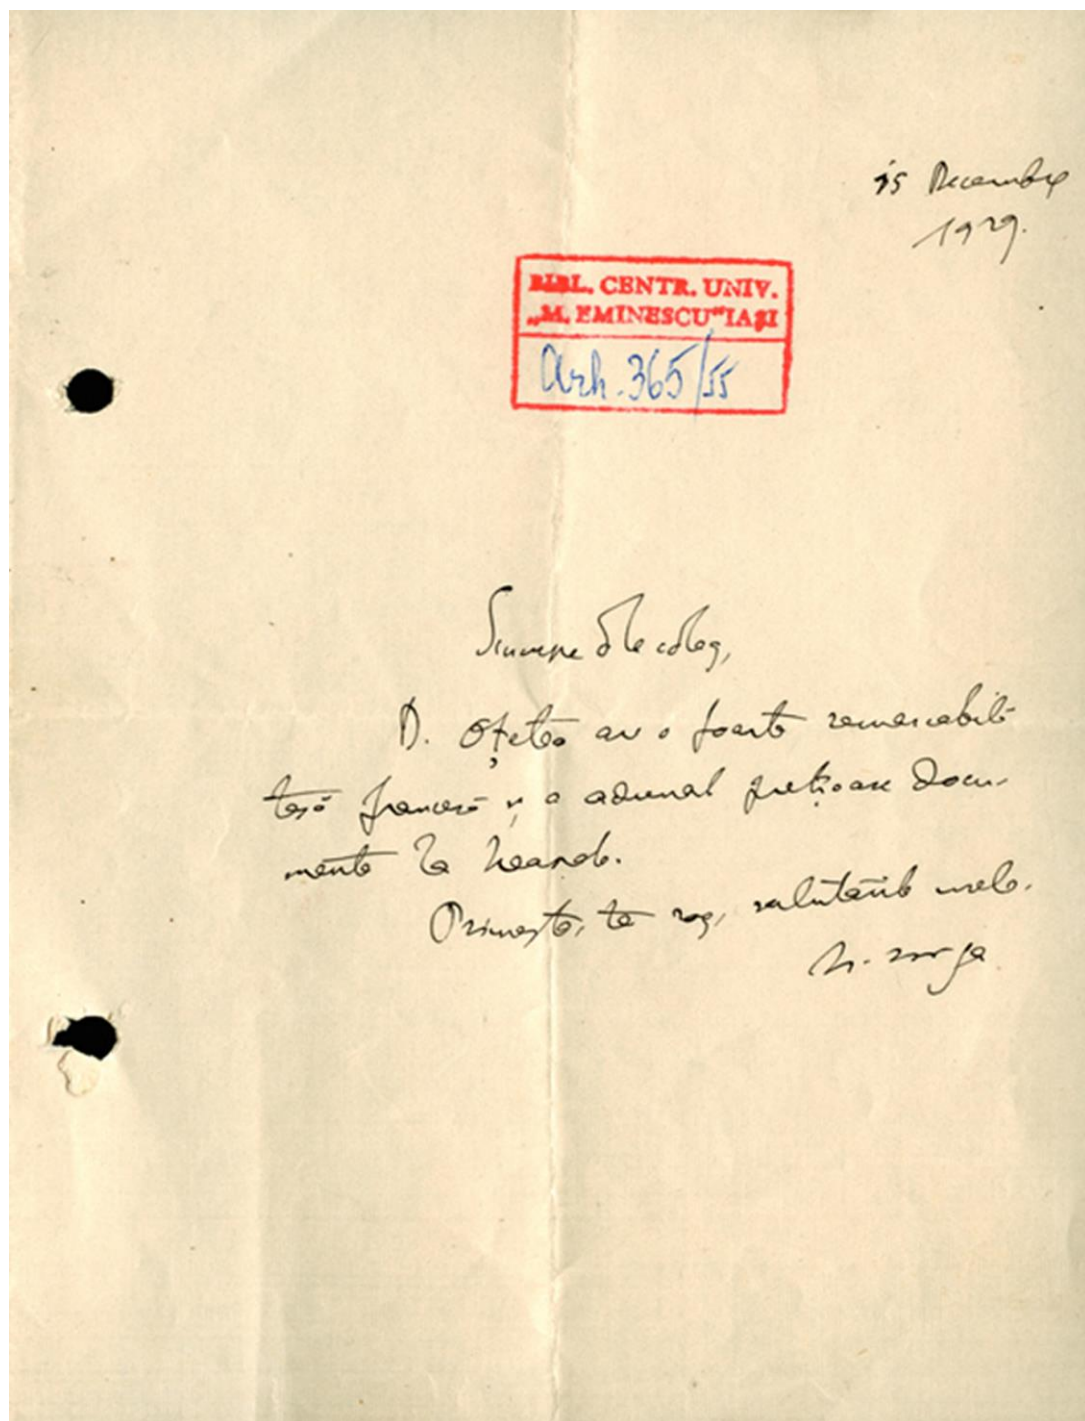 15 Decembre
1929.
BIBL. CENTR. UNIV.
„M. EMINESCU" IAŞI
Arh. 365/55
Scumpe Dle coleg,
D. Oţetea are o foarte remarcabilă
tesă francesă şi a adunat preţioase docu-
mente la Neapole.
Primeşte, te rog, salutările mele.
N. Iorga